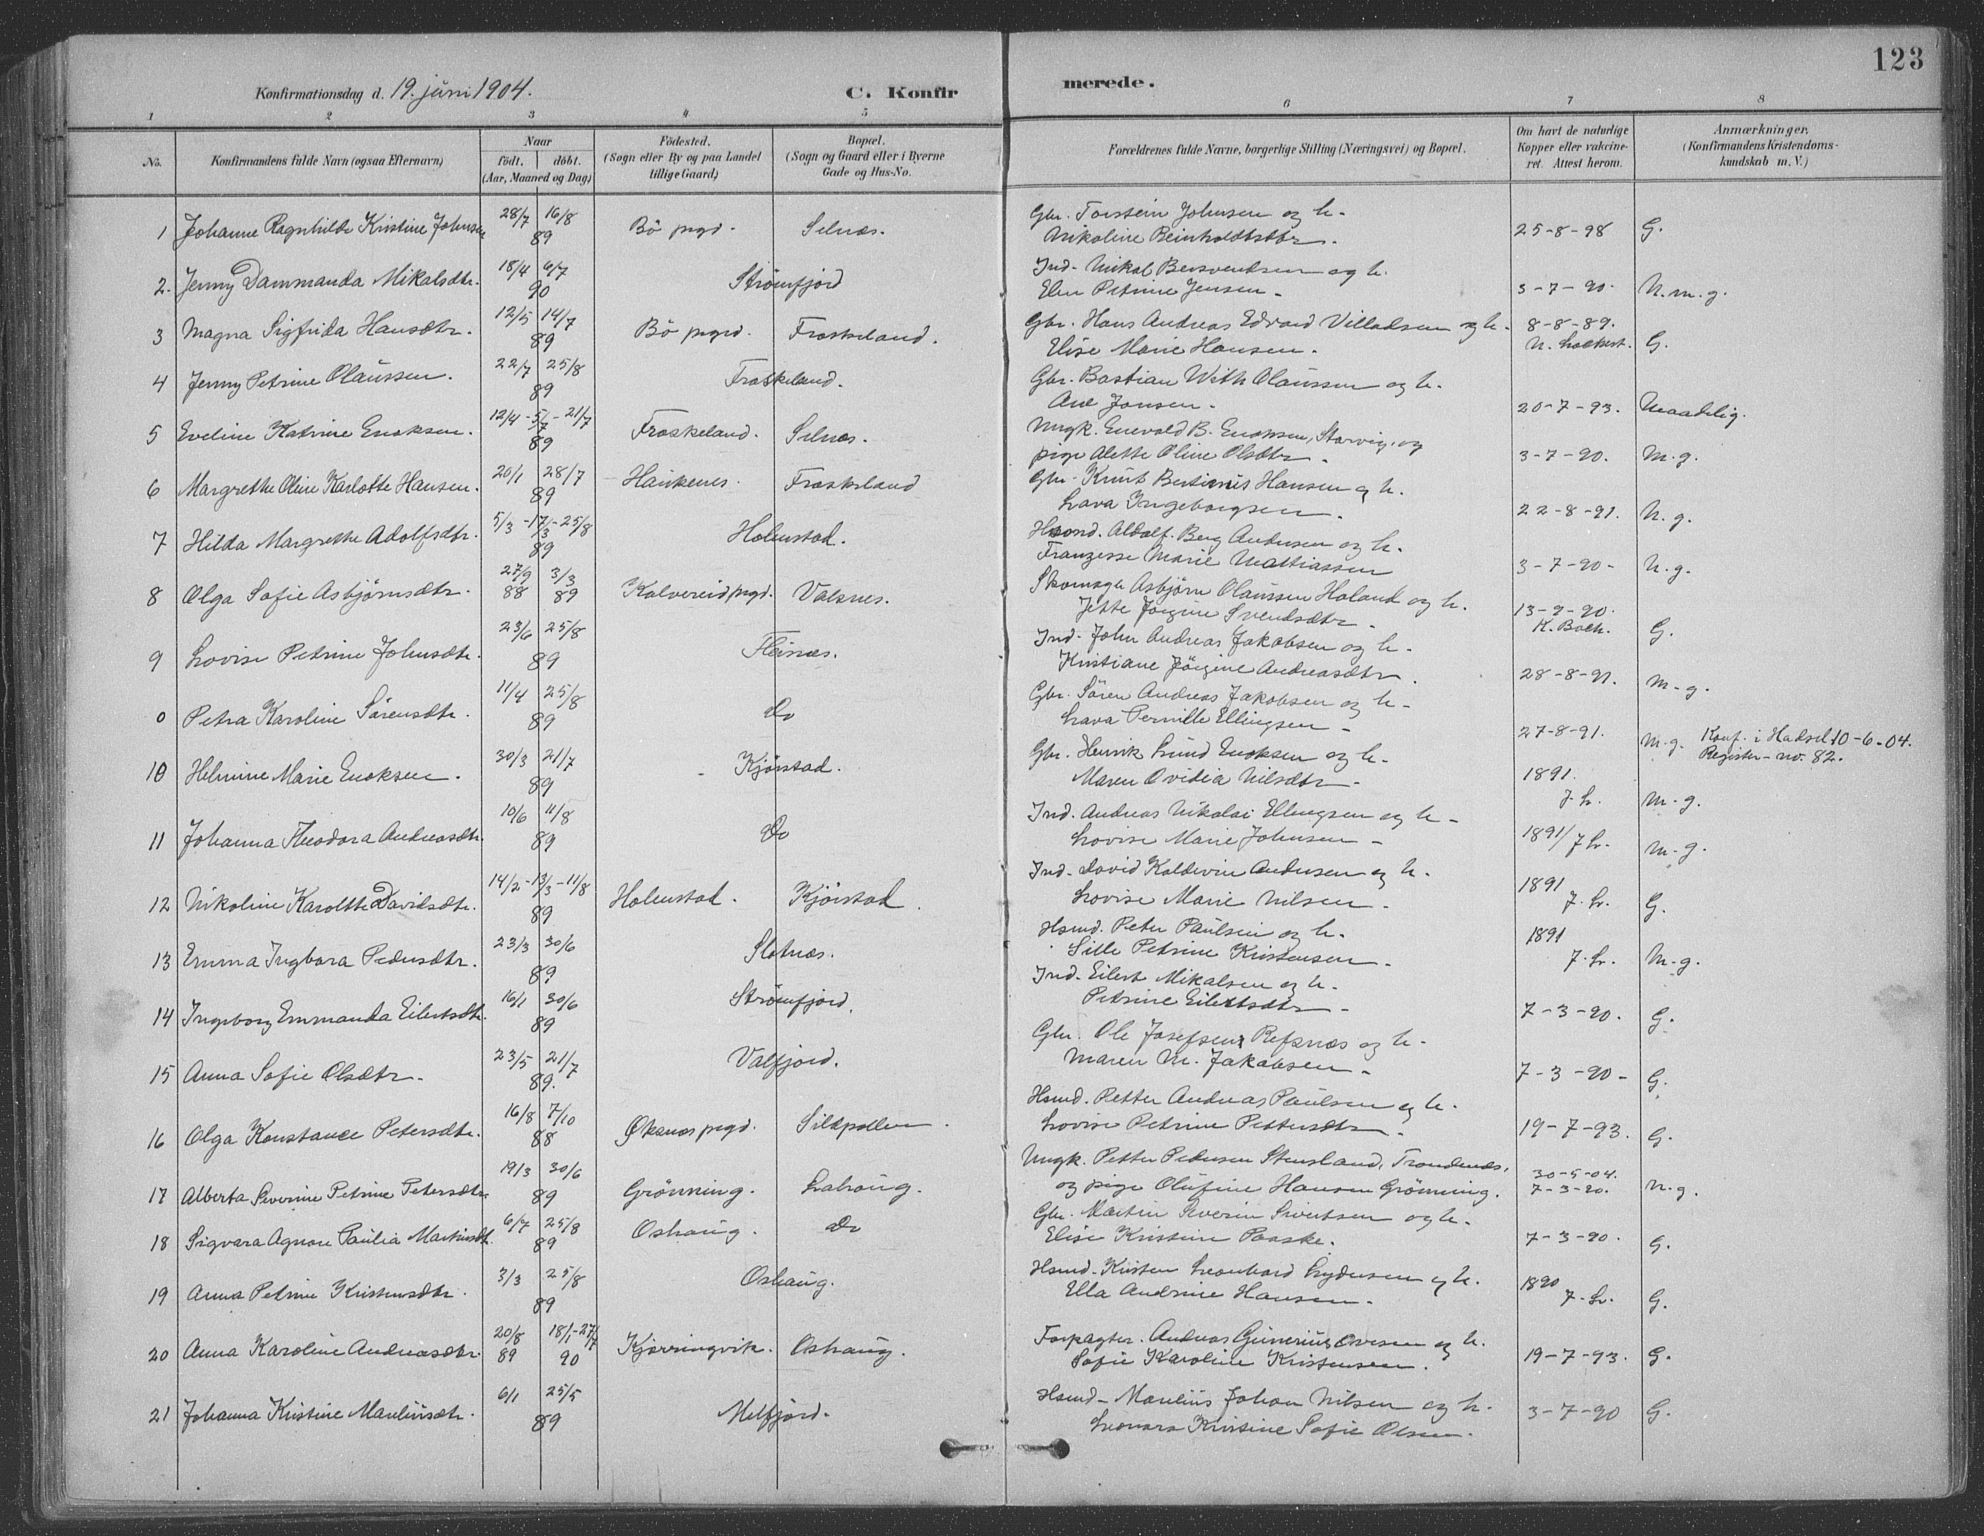 123
Konfirmationsdag d. 19. juni 1904.
C. Konfir
merede.
1 2 3 4 5 6 7 8
No.
Konfirmandens fulde Navn (ogsaa Efternavn)
Naar
födt. döbt.
(Aar, Maaned og Dag)
Födested.
(Sogn eller By og paa Landet
tillige Gaard)
Bopæl.
(Sogn og Gaard eller i Byerne
Gade og Hus-No.
Forældrenes fulde Navne, borgerlige Stilling (Næringsvei) og Bopæl.
Om havt de naturlige
Kopper eller vakcine-
ret. Attest herom.
Anmærkninger.
(Konfirmandens Kristendoms-
kundskab m. V.)
1 Johanne Ragnhilde Kristine Johnsen 28/7 16/8 89 Bö prgd. Selnæs. Gbr. Torstein Johnsen og h. Nikoline Reinholdtsdtr. 25-8-98 G.
2. Jenny Dammanda Mikalsdtr. 18/4 6/7 90 Strömfjord Ind. Mikal Bersvendsen og h. Elen Petrine Jensen - 3-7-90. N.m.g.
3 Magna Sigfrida Hansdtr. 12/5 14/7 89 Bö prgd. Fraskeland. Gbr. Hans Andreas Edvard Villadsen og h. Elise Marie Hansen. 8-8-89. N. Lockert. G.
4 Jenny Petrine Olaussen. 22/7 25/8 89 Fraskeland. Gbr. Bastian With Olaussen og h. Ane Jonsen. 20-7-93. Maadelig.
5 Eveline Katrine Enoksen. 12/4 - 5/7 - 21/7 89 Fraskeland. Selnæs. Ungk. Enevold B. Enoksen, Starvig, og pige Alette Oline Olsdtr. 3-7-90. M.g.
6 Margrethe Oline Karlotte Hansen. 20/1 28/7 89 Haukenes. Fraskeland Gbr. Knut Bertinius Hansen og h. Lava Ingeborgsen. 22-8-91. N.g.
7 Hilda Margrethe Adolfsdtr. 5/3 - 17/3 - 25/8 89 Holmstad. Hsmd. Aldolf. Berg Andersen og h. Franzesse Marie Mattiassen 3-7-90- N.g.
8 Olga Sofie Asbjörnsdtr. 27/9 88 3/3 89 Kolvereid prgd. Valsnes. Skomagr Asbjörn Olaussen Holand og h. Jette Jörgine Svendsdtr. 13-9-90. K. Boch. G.
9 Lovise Petrine Johnsdtr. 23/6 25/8 89 Fleisnes. Ind. John Andreas Jakobsen og h. Kristiane Jörgine Andreasdtr. 28-8-91. M.g.
0 Petra Karoline Sörensdtr. 11/4 25/8 89 Do Gbr. Sören Andreas Jakobsen og h. Lava Pernille Ellingsen - 27-8-91. M.g. Konf. i Hadsel 10-6-04. Register-no. 82.
10 Helmine Marie Enoksen. 30/3 21/7 89 Kjörstad. Gbr. Henrik Lund Enoksen og h. Maren Ovidia Nilsdtr. 1891. J. Lr. M.g.
11 Johanna Theodora Andreasdtr. 10/6 11/8 89 Do Ind. Andreas Nikolai Ellingsen og h. Lovise Marie Johnsen - 1891/ J Lr. M.g.
12 Nikoline Karoltte Davidsdtr. 14/2 - 13/3 - 11/8 89 Holmstad. Kjörstad. Ind. David Koldevin Andersen og h. Lovise Marie Nilsen. 1891 J. Lr. G.
13 Emma Ingbora Pedersdtr. 23/3 30/6 89 Slotnæs. Hsmd. Peter Paulsen og h. Sille Petrine Kristensen - 1891 J. Lr. M.g.
14 Ingeborg Emmanda Eilertsdtr. 16/1 30/6 89 Strömfjord. Ind. Eilert Mikalsen og h. Petrine Eilertsdtr - 7-3-90. G.
15 Anna Sofie Olsdtr. 23/5 21/7 89. Valfjord. Gbr. Ole Josefsen Refsnæs og h. Maren M. Jakobsen - 7-3-90- G.
16 Olga Konstance Petersdtr. 16/8 7/10 88 Øksnæs prgd. Sildpollen. Hsmd. Petter Andreas Paulsen og h. Lovise Petrine Pettersdtr. 19-7-93. G.
17 Alberta Severine Petrine Petersdtr 19/3 30/6 89 Grönning. Lahaug. Ungk. Petter Pedersen Stensland, Trondenæs, og pige Olufine Hansen Grönning. 30-5-04. 7-3-90. N.g.
18 Sigvara Agnore Paulia Martinsdtr. 6/7 25/8 89 Oshaug. Do Gbr. Martin Severin Sivertsen og h. Elise Kristine Paaske. 7-3-90. G.
19 Anna Petrine Kristensdtr. 3/3 25/8 89 Oshaug. Hsmd. Kristen Leonhard Lydersen og h. Ella Andrine Hansen. 1890 J. Lr. G.
20 Anna Karoline Andreasdtr. 20/8 89 18/1-27/7 90 Kjerringvik. Oshaug. Forpagter. Andreas Gunerius Ovesen og h. Sofie Karoline Kristensen. 19-7-93. G.
21 Johanna Kristine Mauliusdtr. 6/1 25/5 89 Melfjord. Hsmd. Maulius Johan Nilsen og h. Leonora Kristine Sofie Olsen. 3-7-90 G.